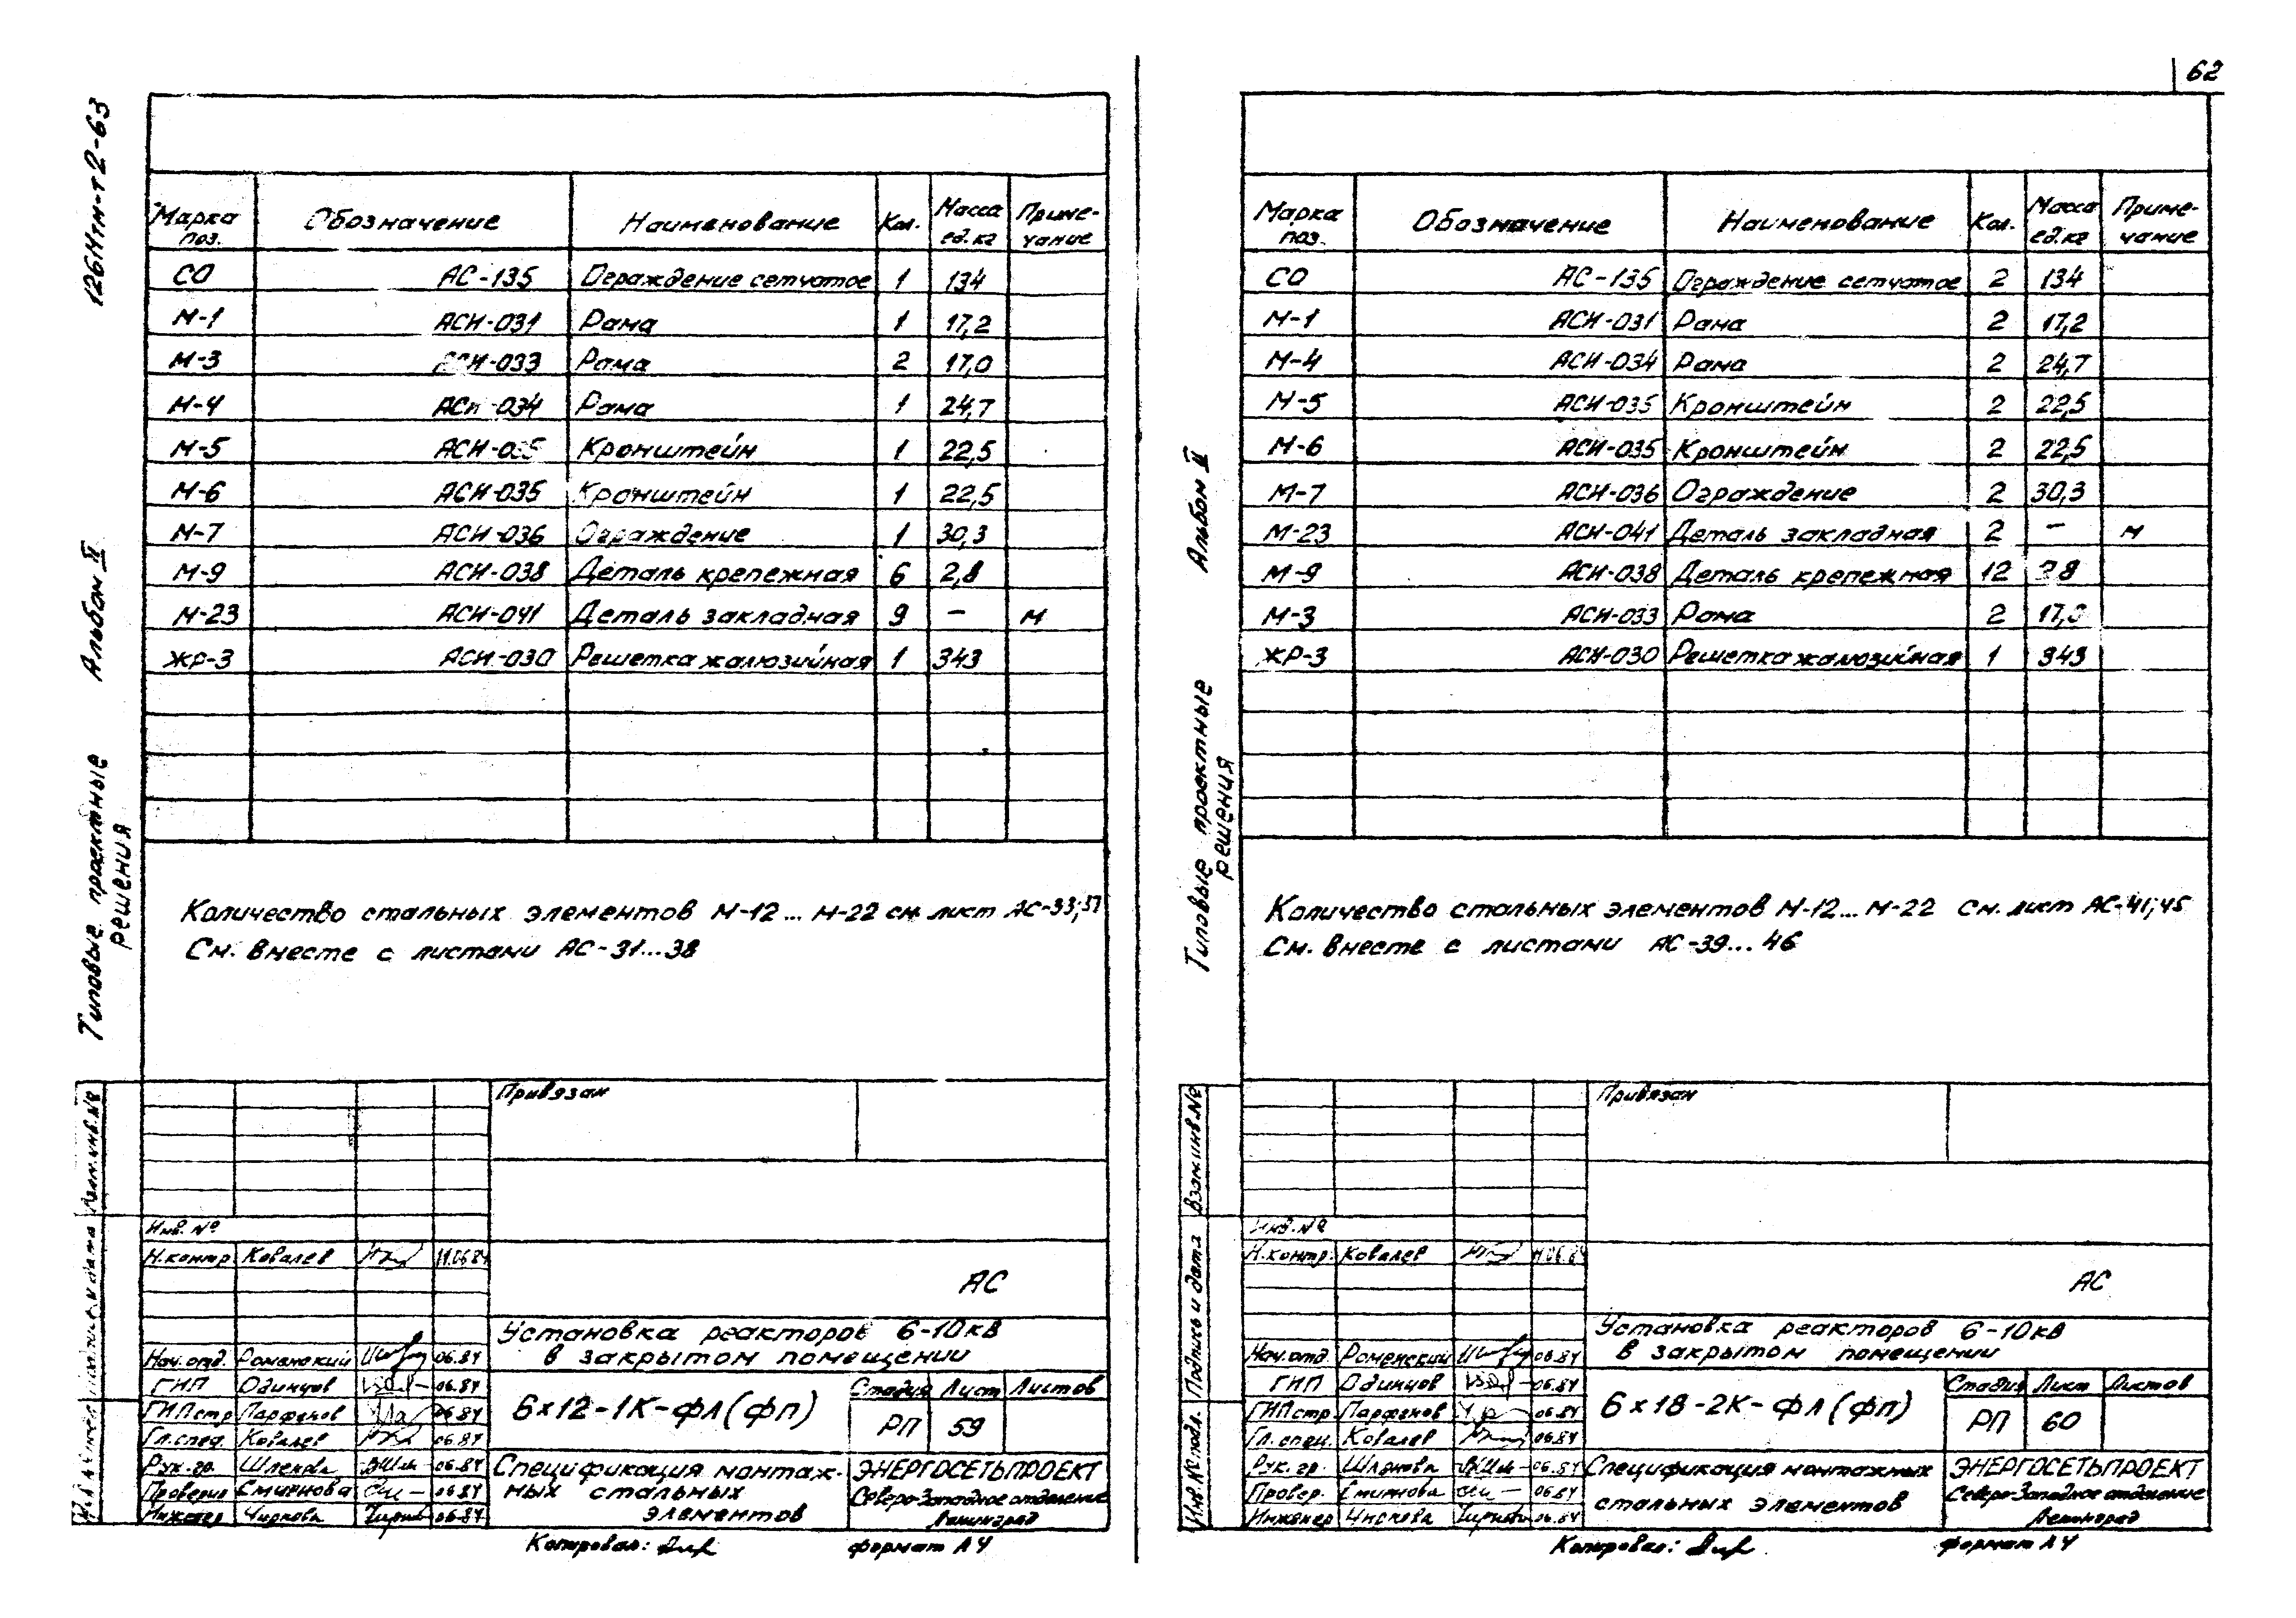 62
126МТМ-Т2-63
Альбом II
Типовые проектные
решения
Марка поз. Обозначение Наименование Кол. Масса ед.кг Приме-чание
СО АС-135 Ограждение сетчатое 1 134
М-1 АСИ-031 Рама 1 17,2
М-3 АСИ-033 Рама 2 17,0
М-4 АСИ-034 Рама 1 24,7
М-5 АСИ-035 Кронштейн 1 22,5
М-6 АСИ-035 Кронштейн 1 22,5
М-7 АСИ-036 Ограждение 1 30,3
М-9 АСИ-038 Деталь крепежная 6 2,8
М-23 АСИ-041 Деталь закладная 9 – м
ЖР-3 АСИ-030 Решетка жалюзийная 1 343
Количество стальных элементов М-12... М-22 см. лист АС-33;37
См. вместе с листами АС-31...38
Привязан
Инв. №
Н.контр Ковалев 11.06.84
АС
Установка реакторов 6-10кВ
в закрытом помещении
Нач.отд. Роменский 06.84
ГИП Одинцов 06.84
ГИП стр Парфенов 06.84
Гл.спец. Ковалев 06.84
Рук.гр. Шленова 06.84
Проверил Смирнова 06.84
Инженер Чиркова 06.84
6х12-1К-ФЛ(фп)
Стадия Лист Листов
РП 59
Спецификация монтаж-
ных стальных
элементов
ЭНЕРГОСЕТЬПРОЕКТ
Северо-Западное отделение
Ленинград
Копировал:
формат А4
Альбом II
Типовые проектные
решения
Марка поз. Обозначение Наименование Кол. Масса ед.кг Приме-чание
СО АС-135 Ограждение сетчатое 2 134
М-1 АСИ-031 Рама 2 17,2
М-4 АСИ-034 Рама 2 24,7
М-5 АСИ-035 Кронштейн 2 22,5
М-6 АСИ-035 Кронштейн 2 22,5
М-7 АСИ-036 Ограждение 2 30,3
М-23 АСИ-041 Деталь закладная 2 – м
М-9 АСИ-038 Деталь крепежная 12
М-3 АСИ-033 Рама 2 17,0
ЖР-3 АСИ-030 Решетка жалюзийная 1 343
Количество стальных элементов М-12... М-22 см. лист АС-41;45
См. вместе с листами АС-39...46
Взам.инв.№
Подпись и дата
Инв.№ подл.
Привязан
Инв.№
Н.контр. Ковалев 11.06.84
АС
Установка реакторов 6-10кВ
в закрытом помещении
Нач.отд Роменский 06.84
ГИП Одинцов 06.84
ГИП стр Парфенов 06.84
Гл.спец. Ковалев 06.84
Рук. гр. Шленова 06.84
Провер. Смирнова 06.84
Инженер Чиркова 06.84
6х18-2К-ФЛ(фп)
Стадия Лист Листов
РП 60
Спецификация монтажных
стальных элементов
ЭНЕРГОСЕТЬПРОЕКТ
Северо-Западное отделение
Ленинград
Копировал:
формат А4